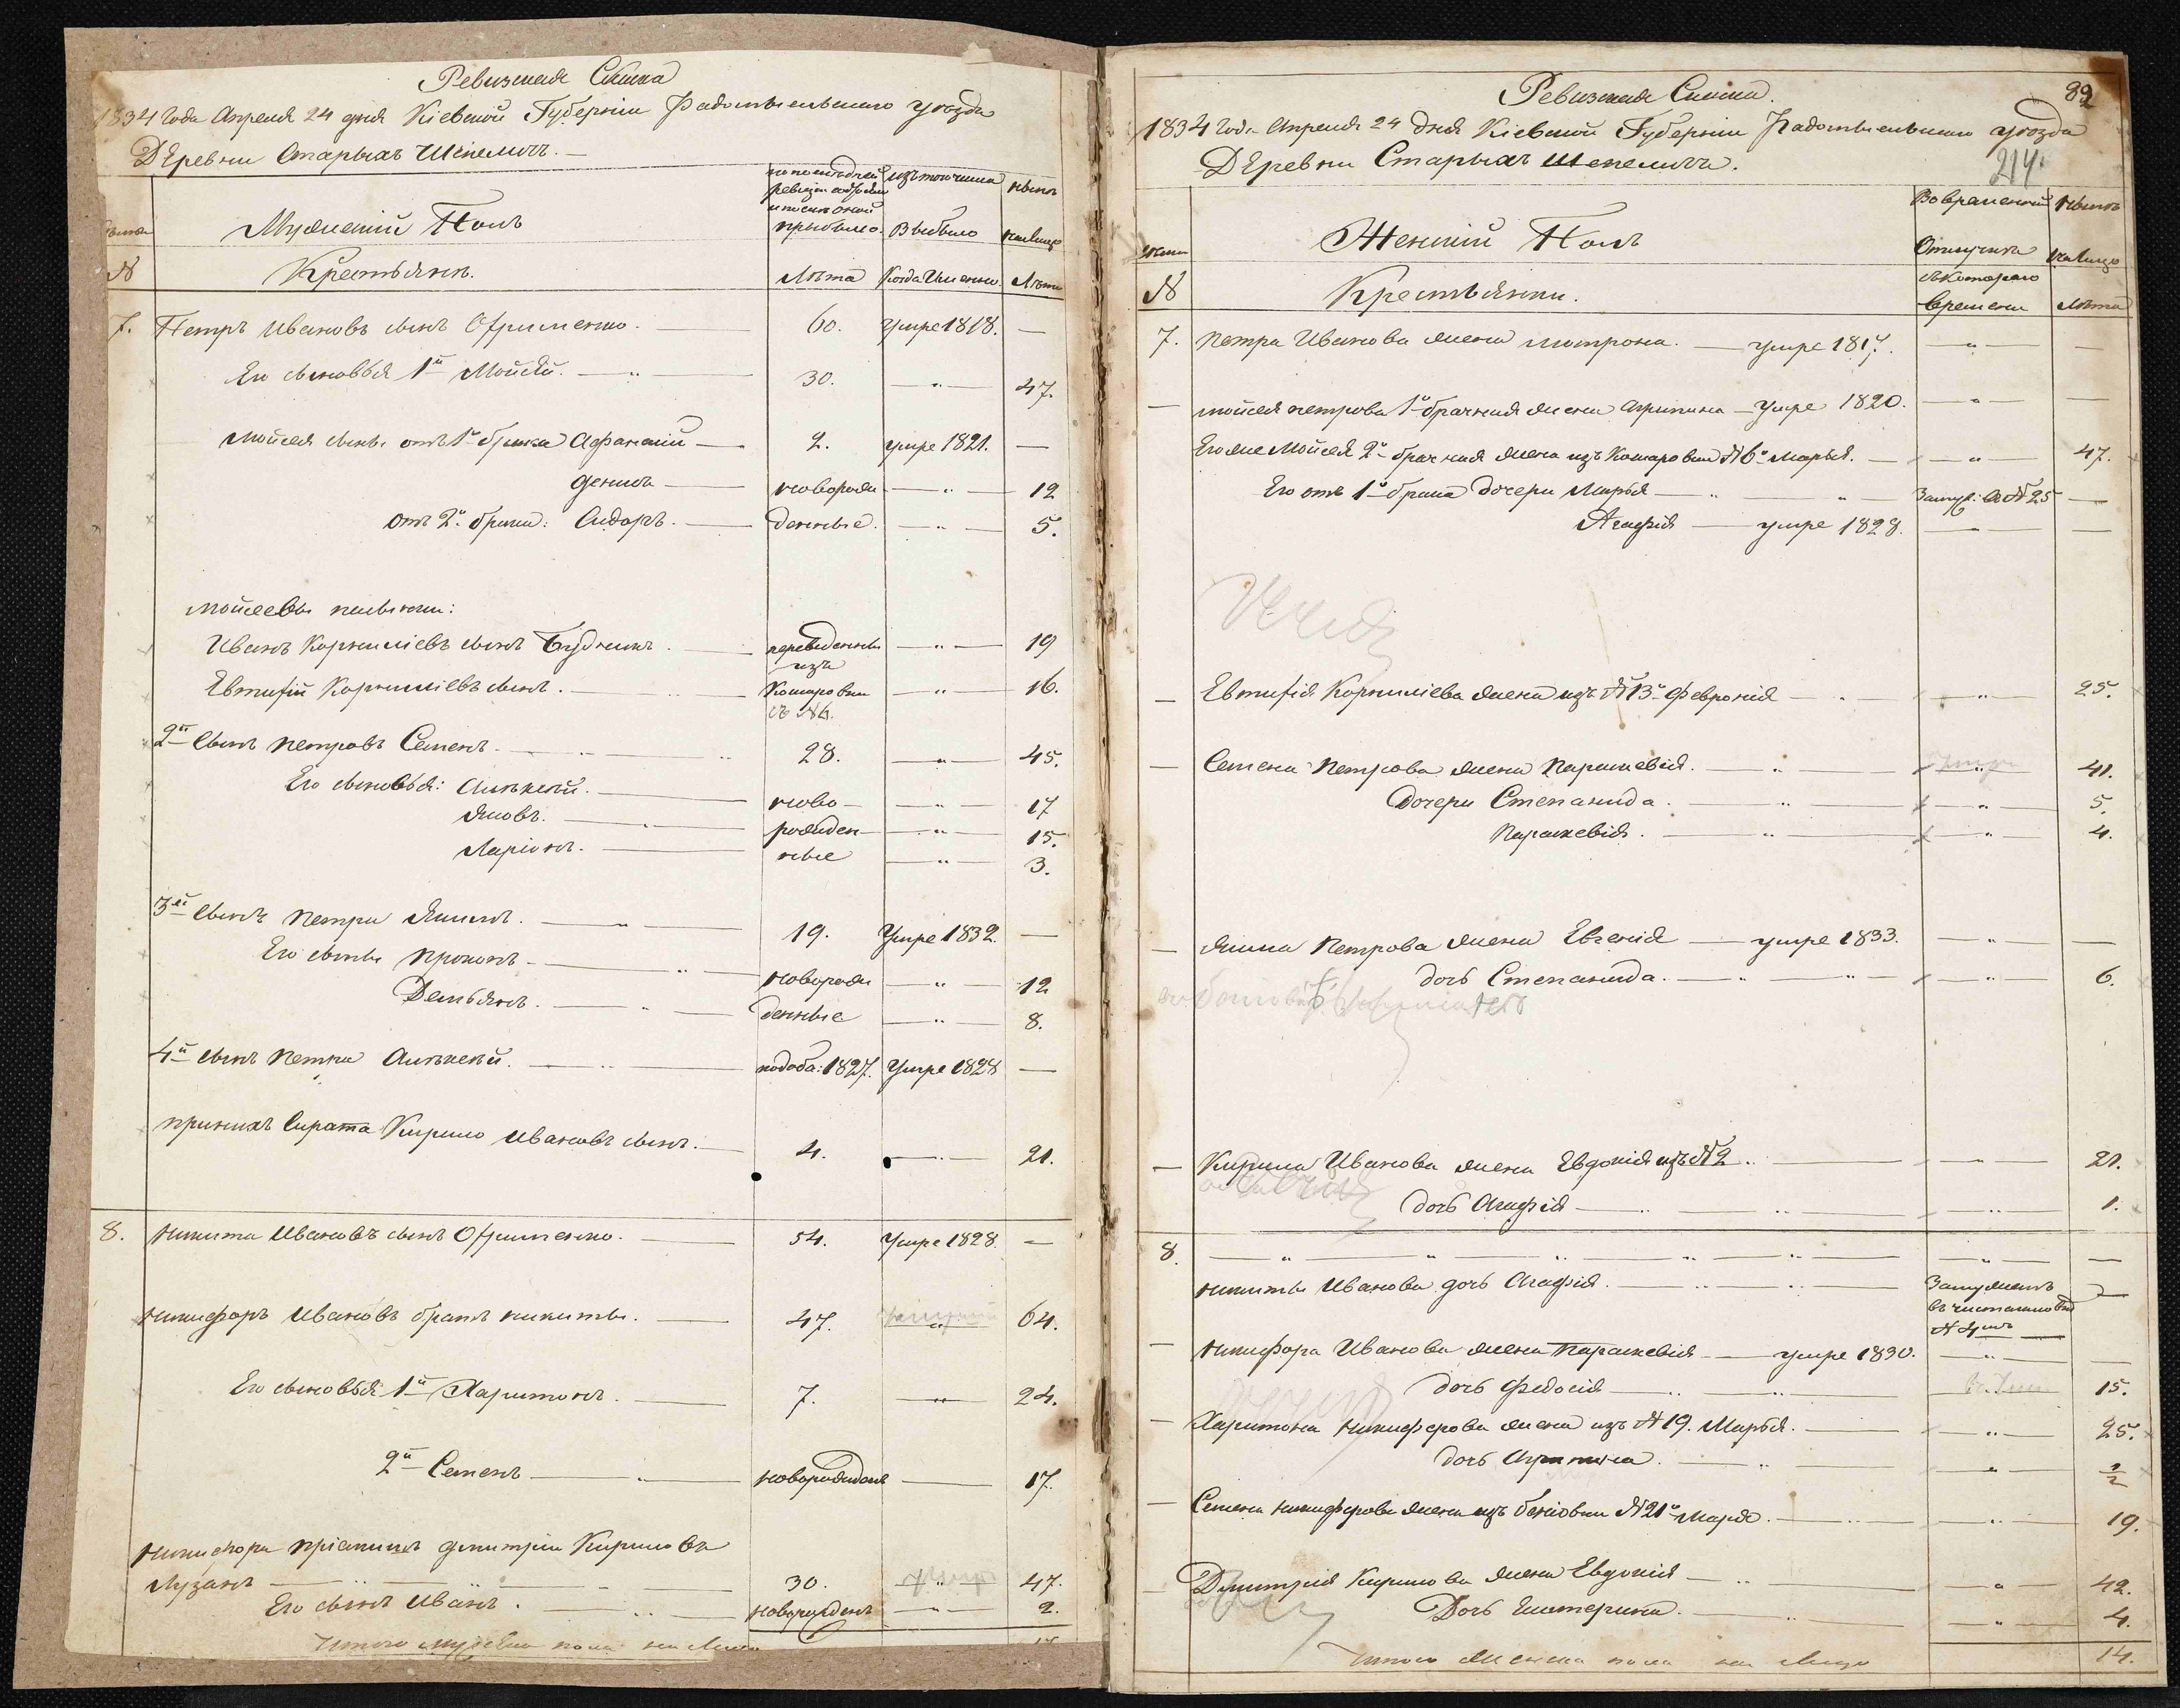 Ревизская Сказка
1834 Года Апреля 24 дня Кіевской Губерніи Радомысльского уезда
Деревни Старыхъ Шепеличъ.
Мужескій Полъ
по последней ревизіи состояло и после оной прибыло.
изъ того числа Выбыло
ныне налицо
№
Крестьяне.
Лѣта
Когда Именно.
Лѣта
7. Петръ Ивановъ сынъ Ефименко. 60. умре 1818. —
Его сыновья 1й Мойсей. 30. — 47.
Мойсея сыны отъ 1го брака Афанасий 2. умре 1821. —
Денисъ новорож — 12
отъ 2го брака: Сидоръ. денные. — 5.
Мойсеевы пасынки:
Иванъ Корниліевъ сынъ Будникъ. переведенны — 19
изъ
Евтифій Корниліевъ сынъ. Комаровки — 16.
съ №6.
2й Сынъ Петровъ Семенъ. 28. — 45.
Его сыновья: Алексей. ново — 17
Яковъ. рожден — 15.
Ларіонъ. ные — 3.
3й Сынъ Петра Якимъ. 19. Умре 1832. —
Его сыны Прокопъ новорож — 12
Демьянъ. денные — 8.
4й сынъ Петра Алексей. 1827. Умре 1828 —
Сирата Кирило Ивановъ сынъ. 4. — 21.
8. Никита Ивановъ сынъ Ефименко. 54. Умре 1828. —
Никифоръ Ивановъ братъ Никиты. 47. 64.
Его сыновья 1й Харитонъ. 7. — 24.
2й Семенъ новорожденъ — 17.
Никифора пріемышъ Димитрій Кириловъ
Лузанъ 30. 47.
Его сынъ Иванъ. новорожденъ — 2.
Итого мужеска пола на лицо
Ревизская Сказка.
89
1834 Года Апреля 24 Дня Кіевской Губерніи Радомысльского уезда
214.
Деревни Старыхъ Шепеличъ.
Женскій Полъ
Во временной Отлучке
ныне налицо
№
Крестьянки.
съ Котораго Времени
Лѣта
7. Петра Иванова жена Мотрона. — умре 1817. — —
— Мойсея Петрова 1о брачная жена Агрипина — умре 1820. — —
Его же Мойсея 2о брачная жена изъ Комаровки №6о Марья. — 47.
Его отъ 1о брака Дочери Марья — Замуж: въ №25 —
Агафія — умре 1828. — —
— Евтифія Корниліева жена изъ №13о Февронія — 25.
— Семена Петрова жена Параскевія. 41.
Дочери Степанида. — 5.
Параскевія. — 4.
— Якима Петрова жена Евгенія — умре 1833. — —
дочь Степанида. — 6.
— Кирила Иванова жена Евдокія изъ №2. — 21.
дочь Агафія — 1.
8. — —
Никиты Иванова дочь Агафія. Замужемъ —
въ
№4мъ
— Никифора Иванова жена Параскевія — умре 1830. — —
дочь Федосія 15.
— Харитона Никифорова жена изъ №19. Марья. — 25.
дочь Агрипина. — 1/2
— Семена Никифорова жена изъ Беніовки №21о Марья. — 19.
Димитрія Кирилова жена Евдокія — 42.
Дочь Екатерина. — 4.
Итого Женска пола на Лицо 14.